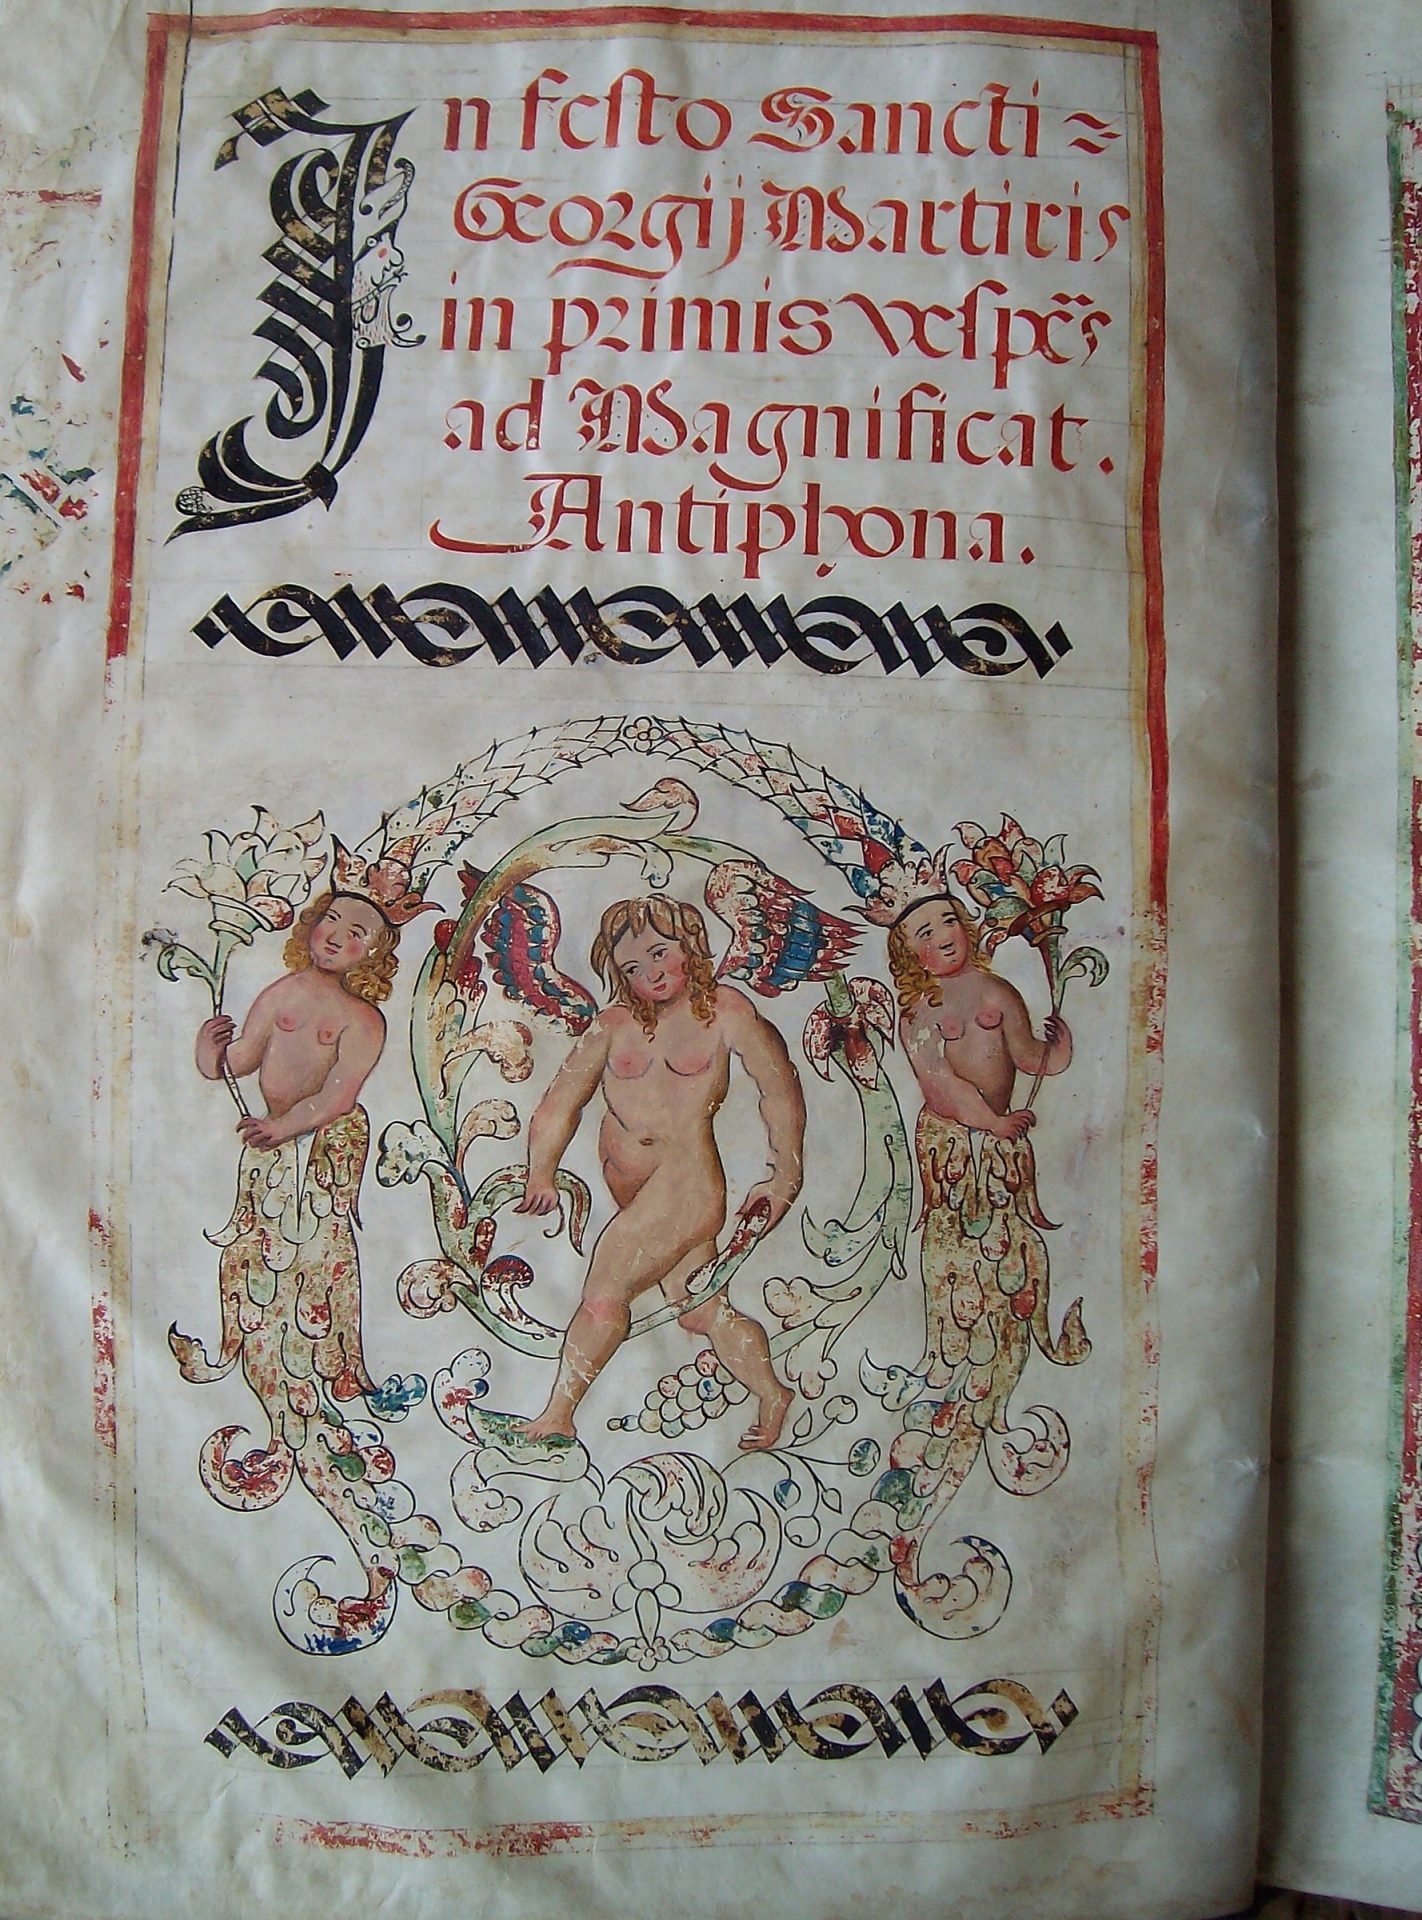 In festo Sancti ~
Georgij Martiris
in primis vesper̈s
ad Magnificat.
Antiphona.